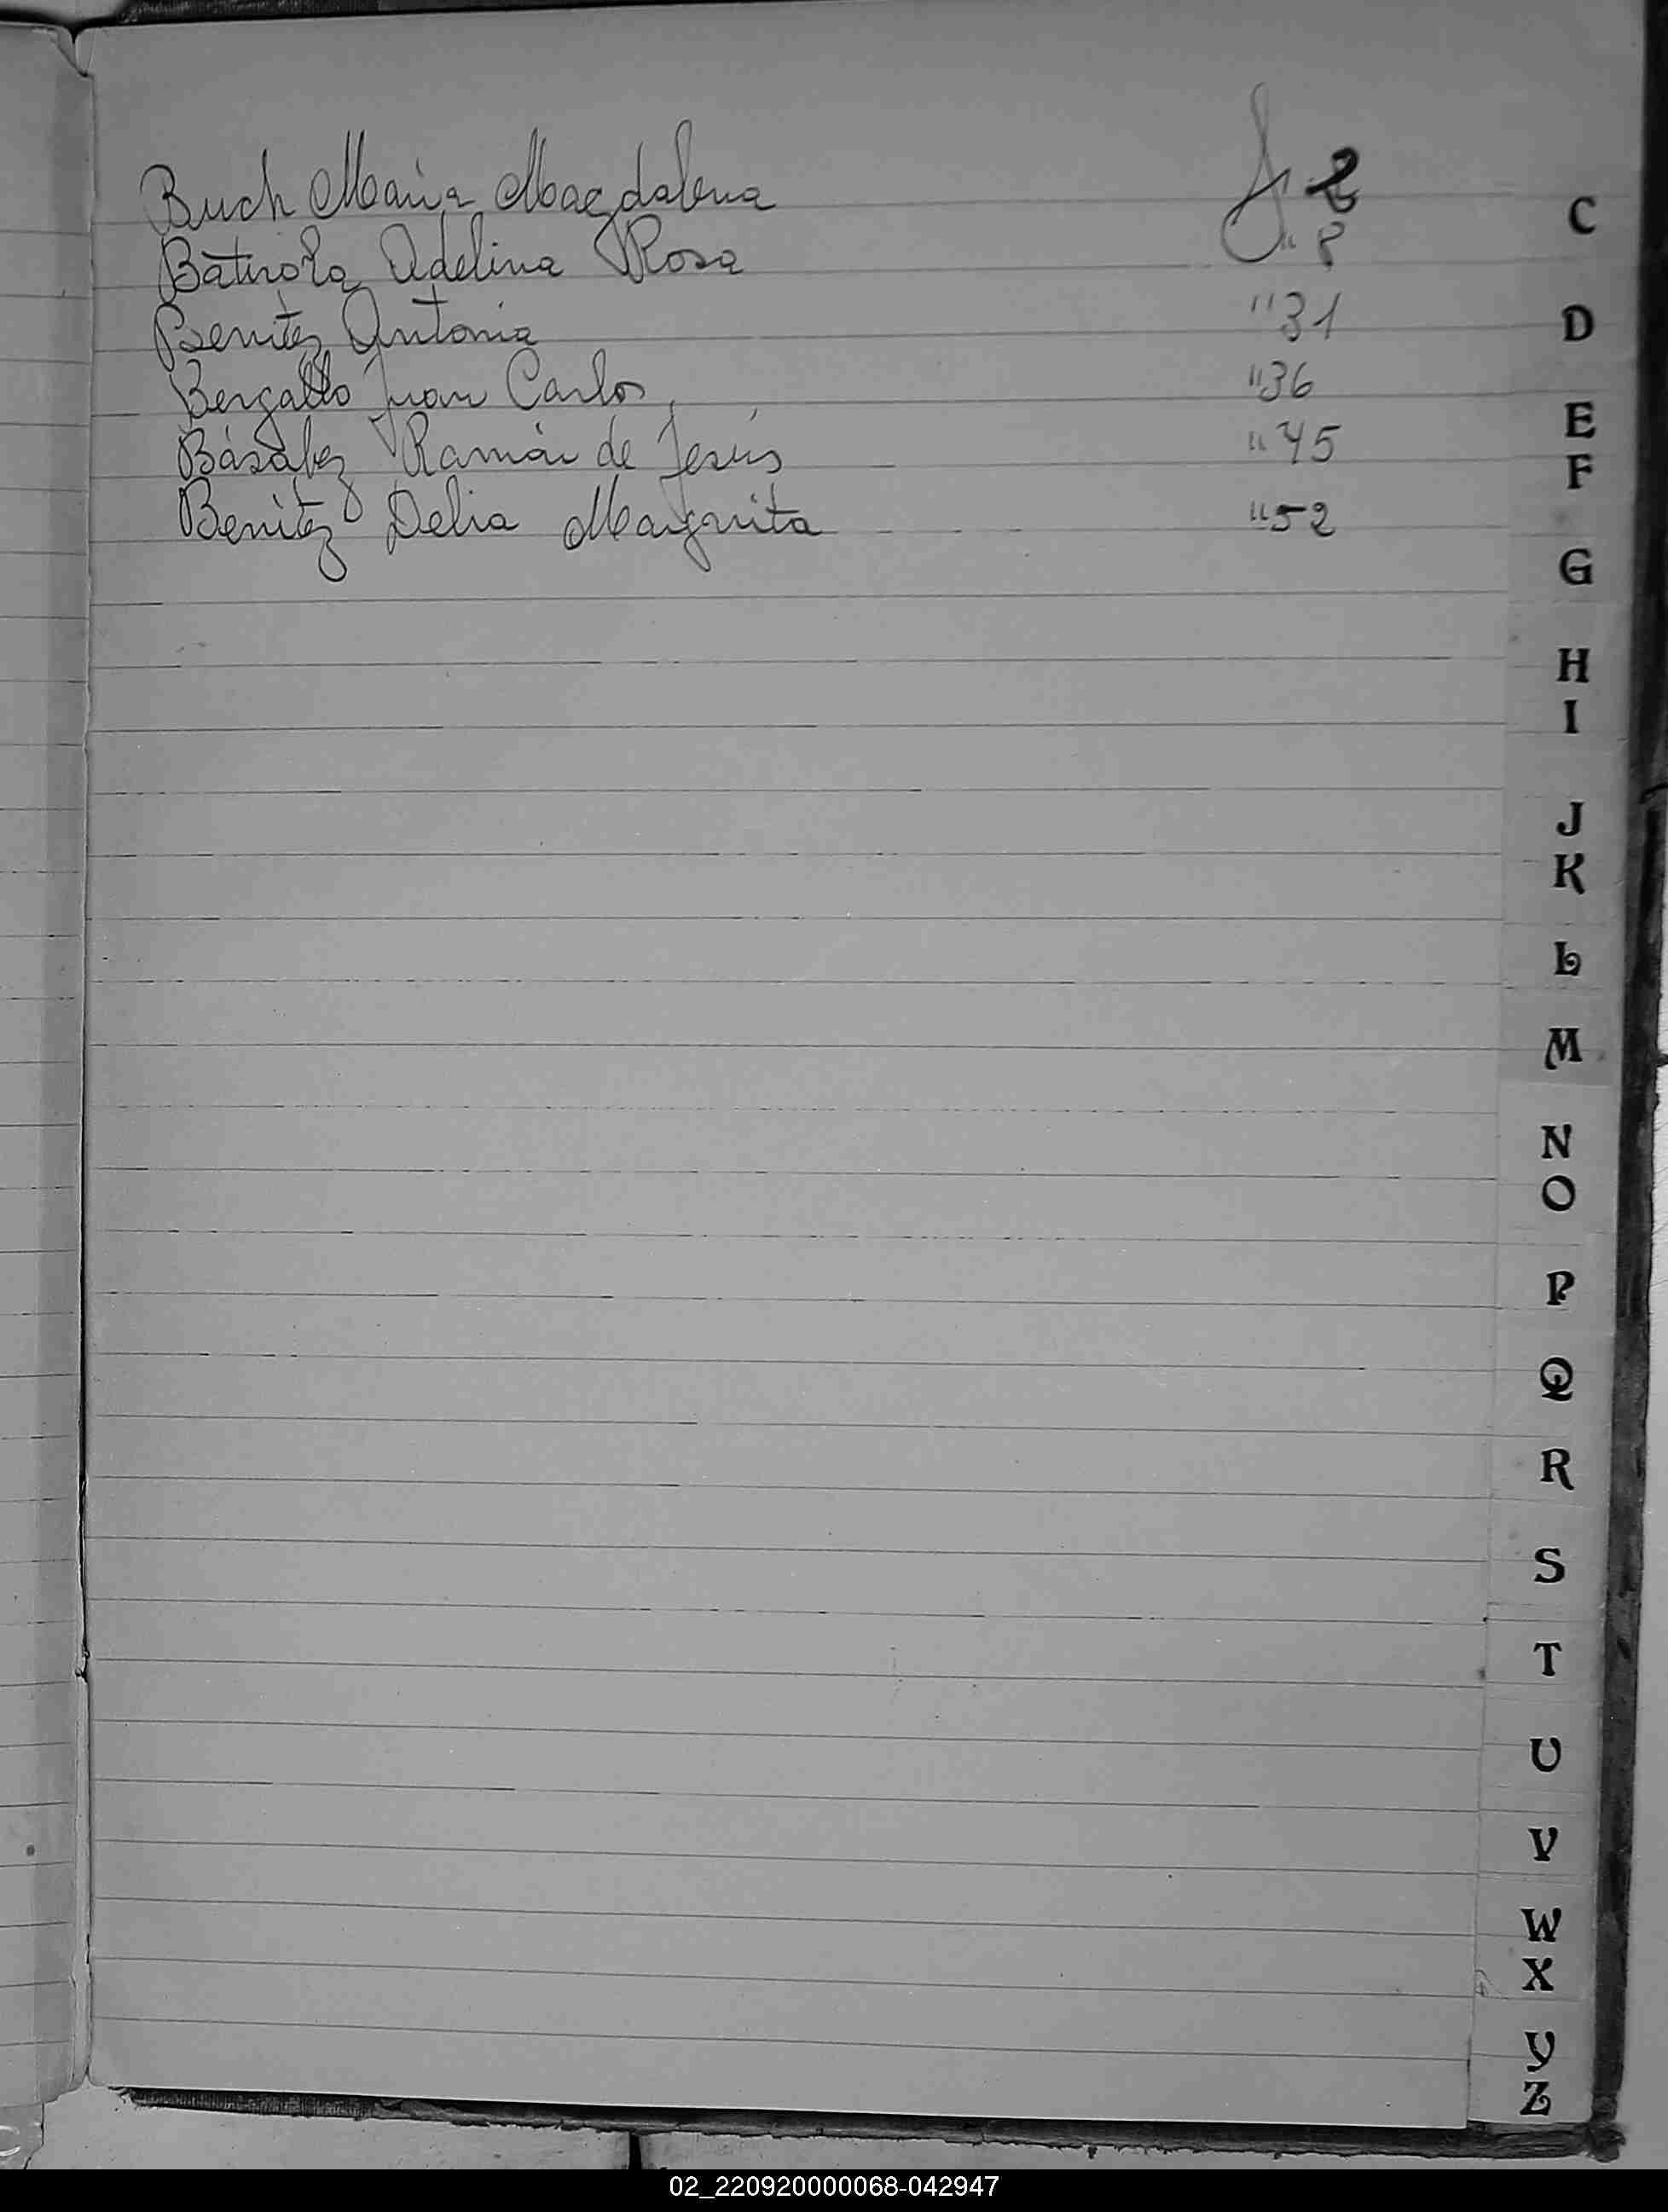 Buch María Magdalena f 2
Adelina Rosa " 8
Benítez Antonia " 31
Bergallo Juan Carlos " 36
Básabez Ramón de Jesús " 45
Benítez Delia Margarita " 52
C
D
E
F
G
H
I
J
K
L
M
N
O
P
Q
R
S
T
U
V
W
X
Y
Z
02_220920000068-042947